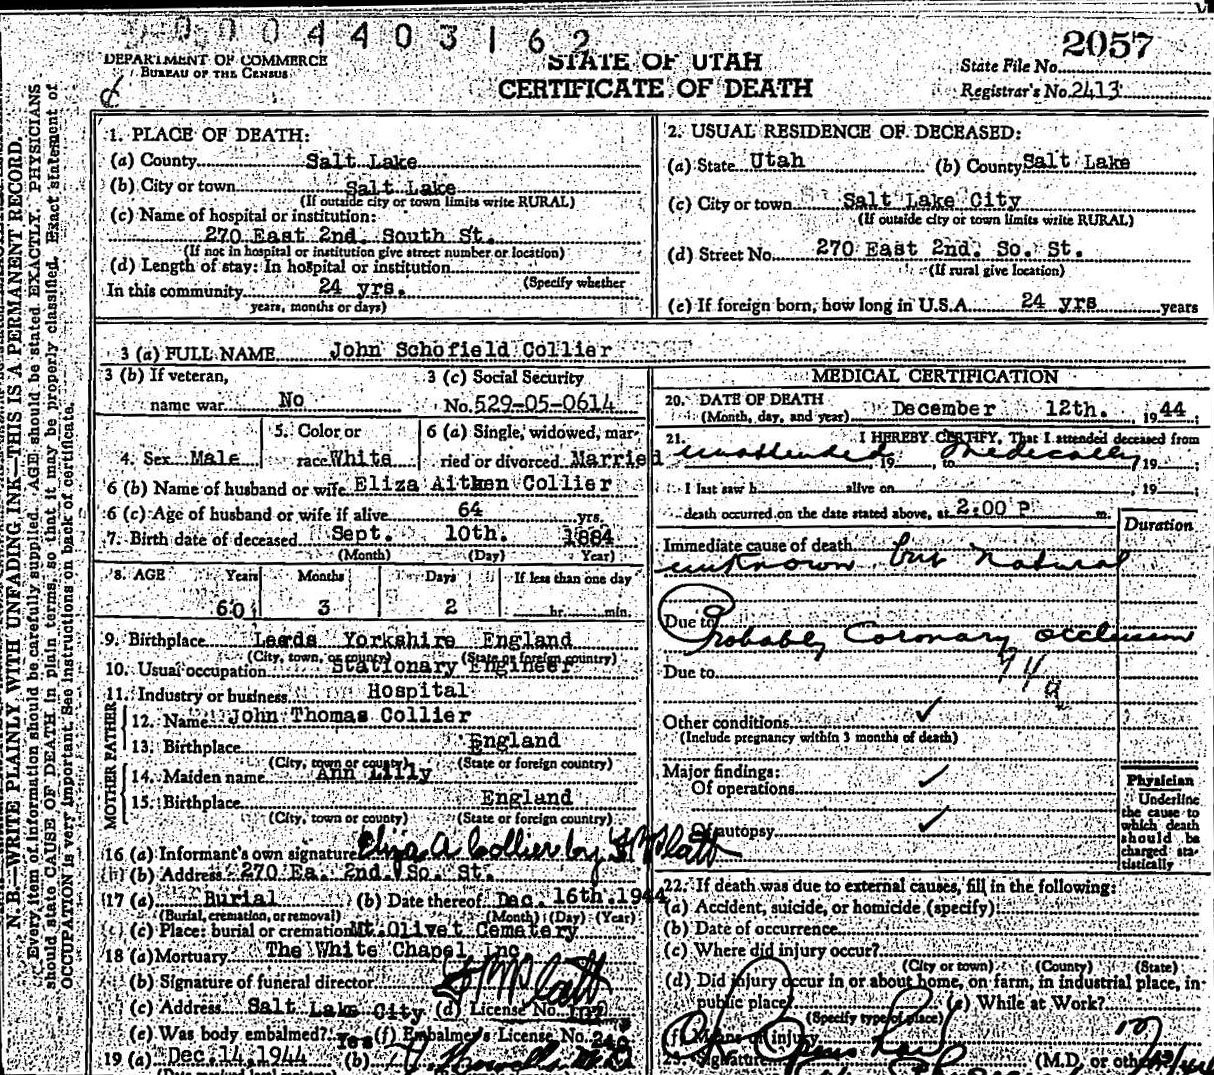 0004403162
DEPARTMENT OF COMMERCE
BUREAU OF THE CENSUS
STATE OF UTAH
CERTIFICATE OF DEATH
2057
State File No.
Registrar's No. 2413
N. B.—WRITE PLAINLY WITH UNFADING INK—THIS IS A PERMANENT RECORD.
Every item of information should be carefully supplied. AGE should be stated EXACTLY. PHYSICIANS
should state CAUSE OF DEATH in plain terms, so that it may be properly classified. Exact statement of
OCCUPATION is very important. See instructions on back of certificate.
1. PLACE OF DEATH:
(a) County Salt Lake
(b) City or town Salt Lake
(If outside city or town limits write RURAL)
(c) Name of hospital or institution:
270 East 2nd. South St.
(If not in hospital or institution give street number or location)
(d) Length of stay: In hospital or institution
(Specify whether
In this community 24 yrs.
years, months or days)
2. USUAL RESIDENCE OF DECEASED:
(a) State Utah (b) County Salt Lake
(c) City or town Salt Lake City
(If outside city or town limits write RURAL)
(d) Street No. 270 East 2nd. So. St.
(If rural give location)
(e) If foreign born, how long in U.S.A. 24 yrs years
3 (a) FULL NAME John Schofield Collier
3 (b) If veteran, 3 (c) Social Security
name war No No. 529-05-0614
5. Color or 6 (a) Single, widowed, mar-
4. Sex Male race White ried or divorced Married
6 (b) Name of husband or wife Eliza Aitken Collier
6 (c) Age of husband or wife if alive 64 yrs.
7. Birth date of deceased Sept. 10th. 1884
(Month) (Day) Year)
8. AGE Years Months Days If less than one day
60 3 2 hr. min.
9. Birthplace Leeds Yorkshire England
(City, town, or county) (State or foreign country)
10. Usual occupation Stationary Engineer
11. Industry or business Hospital
FATHER
12. Name John Thomas Collier
13. Birthplace England
(City, town or county) (State or foreign country)
MOTHER
14. Maiden name Ann Lilly
15. Birthplace England
(City, town or county) (State or foreign country)
16 (a) Informant's own signature Eliza A Collier by
(b) Address 270 Ea. 2nd. So. St.
17 (a) Burial (b) Date thereof Dec. 16th. 1944
(Burial, cremation, or removal) (Month) (Day) (Year)
(c) Place: burial or cremation Mt. Olivet Cematery
18 (a) Mortuary The White Chapel Inc
(b) Signature of funeral director
(c) Address Salt Lake City (d) License No. 107
(e) Was body embalmed? Yes (f) Embalmer's License No.
19 (a) Dec. 14, 1944 (b)
MEDICAL CERTIFICATION
20. DATE OF DEATH
(Month, day, and year) December 12th. 1944
21. I HEREBY CERTIFY, That I attended deceased from
unattended, 19 , to Medically, 19 ;
I last saw h alive on , 19 ;
death occurred on the date stated above, at 2:00 P m.
Duration
Immediate cause of death
unknown but natural
Due to
Probably Coronary occlusion
Due to 94a
Other conditions ✓
(Include pregnancy within 3 months of death)
Major findings:
Of operations ✓
Of autopsy ✓
Physician
Underline
the cause to
which death
should be
charged sta-
tistically
22. If death was due to external causes, fill in the following:
(a) Accident, suicide, or homicide (specify)
(b) Date of occurrence
(c) Where did injury occur?
(City or town) (County) (State)
(d) Did injury occur in or about home, on farm, in industrial place, in
public place? (e) While at Work?
(Specify type of place)
(f) Means of injury
23. Signature (M.D. or other)